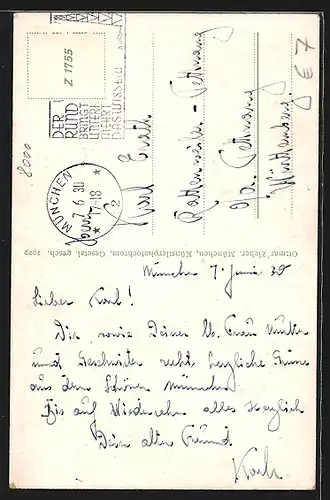 Z 1755
DER
RUND
BRINGT
UNTERH
MEHRT
DAS WISSEN
8000
MÜNCHEN
7 6 30
17-18
2
€ 7
Karl
Rattenweiler - Tettnang
o/a. Tettnang
Württemberg.
Ottmar Zieher, München, Künstlerphotochrom, Gesetzl. gesch. 1929
München 7. Juni 30
Lieber Karl!
Dir sowie Deiner lb. Frau Mutter
und Geschwister recht herzliche Grüsse
aus dem schönen München.
Bis auf Wiedersehn alles Herzlich
Dein alter Freund
Karl